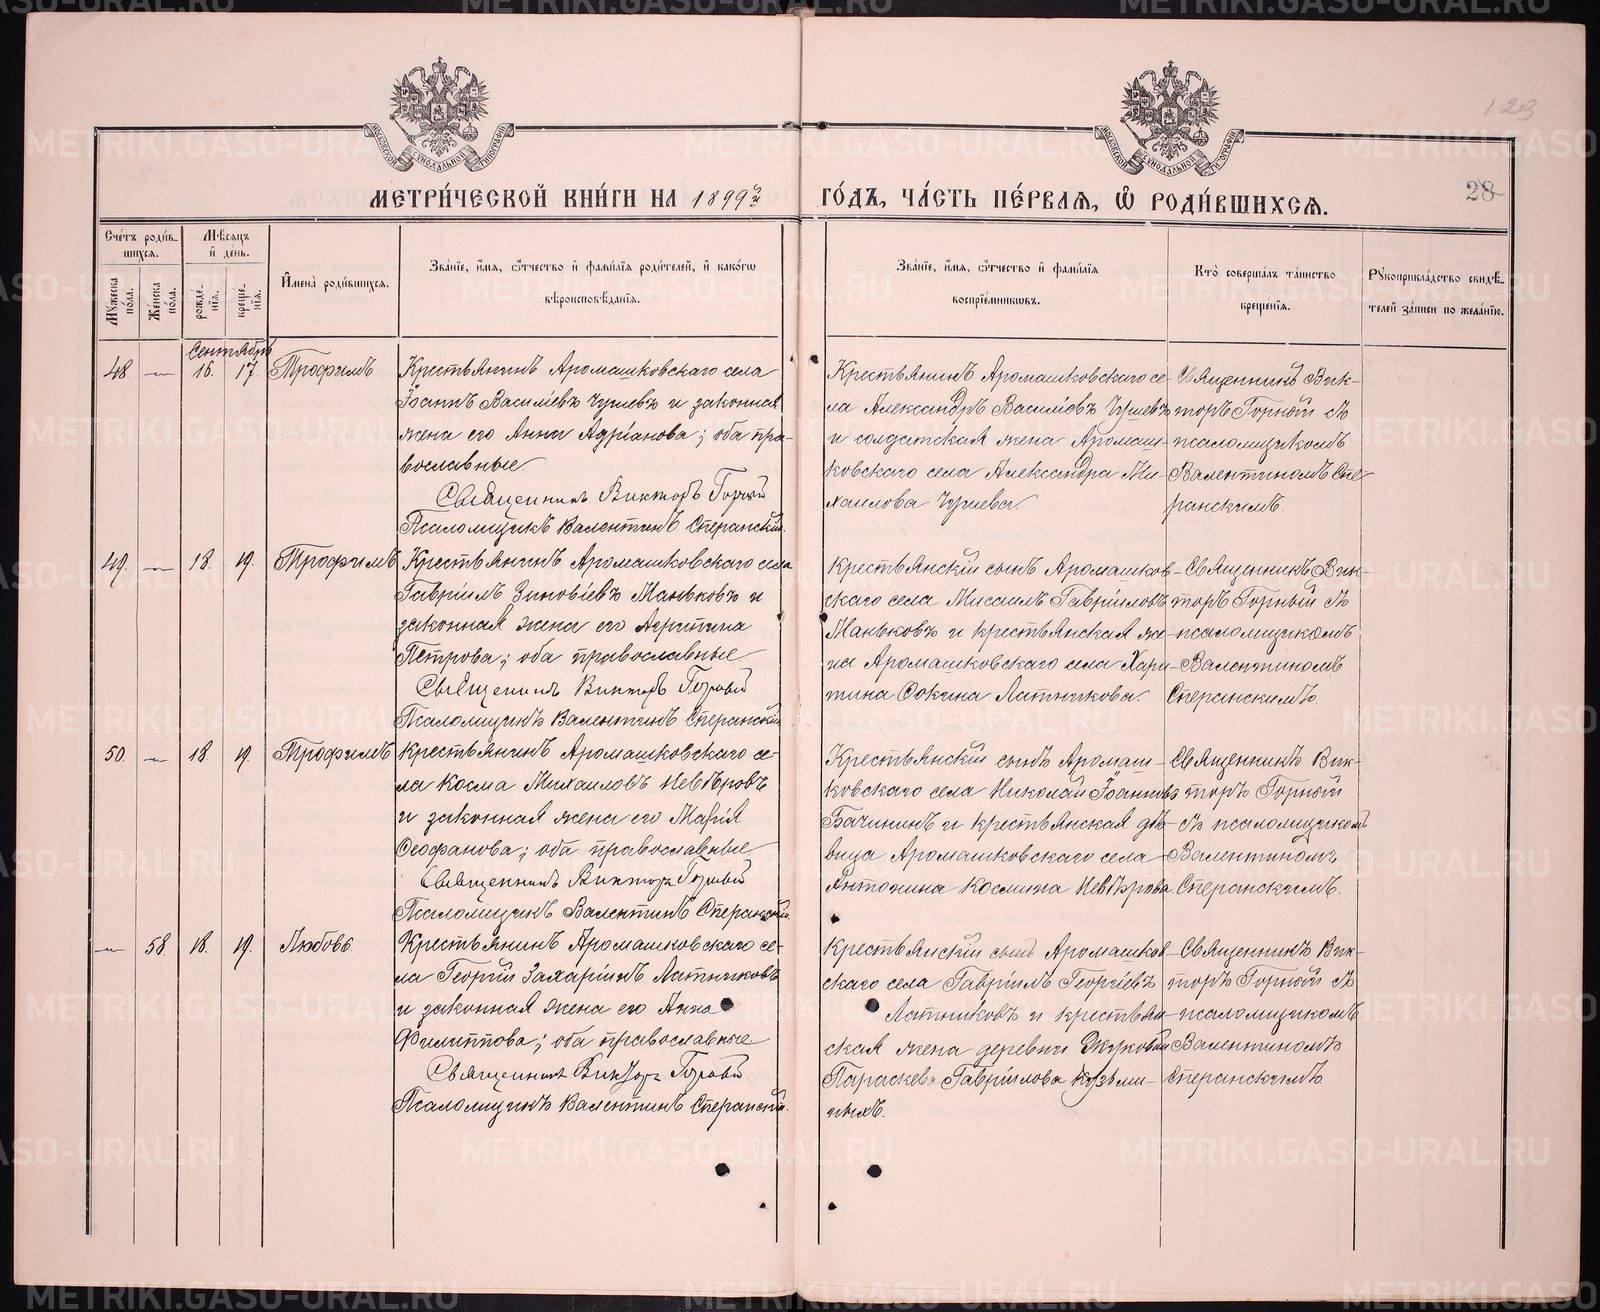 МЕТРИ́ЧЕСКОЙ КНИ́ГИ НА 1899й
ГО́ДЪ, ЧА́СТЬ ПЕ́РВАѦ, Ѽ РОДИ́ВШИХСѦ.
129
28
Сче́тъ роди́в-
шихсѧ.
Мѣ́сѧцъ
и҆ день.
И҆мена̀ роди́вшихсѧ.
Зва́нїе, и҆́мѧ, ѻ҆́тчество и҆ фами́лїѧ роди́телей, и҆ како́гѡ
вѣроисповѣ́данїѧ.
Мꙋ́жеска
по́ла.
Же́нска
по́ла.
рожде́-
нїѧ.
креще́-
нїѧ.
Зва́нїе, и҆́мѧ, ѻ҆́тчество и҆ фами́лїѧ
воспрїе́мниковъ.
Кто̀ соверша́лъ та́инство
креще́нїѧ.
Рꙋкоприкла́дство свидѣ́-
телей за́писи по жела́нїю.
Сентябрь
48 — 16. 17. Трофимъ
Крестьянинъ Аромашковскаго села
Іоаннъ Василіевъ Чушевъ и законная
жена его Анна Адріанова; оба пра-
вославные
Священникъ Викторъ Горный
Псаломщикъ Валентинъ Сперанскій.
Крестьянинъ Аромашковскаго се-
ла Александръ Василіевъ Чушевъ
и солдатская жена Аромаш-
ковскаго села Александра Ми-
хаилова Чушева.
Священникъ Вик-
торъ Горный съ
псаломщикомъ
Валентиномъ Спе-
ранскимъ.
49. — 18. 19. Трофимъ
Крестьянинъ Аромашковскаго села
Гавріилъ Зиновіевъ Маньковъ и
законная жена его Агрипина
Петрова; оба православные.
Священникъ Викторъ Горный
Псаломщикъ Валентинъ Сперанскій
Крестьянскій сынъ Аромашков-
скаго села Мисаилъ Гавріиловъ
Маньковъ и крестьянская же-
на Аромашковскаго села Хари-
тина Фокина Латникова.
Священникъ Вик-
торъ Горный съ
псаломщикомъ
Валентиномъ
Сперанскимъ.
50. — 18. 19. Трофимъ
Крестьянинъ Аромашковскаго се-
ла Косма Михаиловъ Невѣровъ
и законная жена его Марія
Феофанова; оба православные
Священникъ Викторъ Горный
Псаломщикъ Валентинъ Сперанскій.
Крестьянскій сынъ Аромаш-
ковскаго села Николай Іоанновъ
Бачининъ и крестьянская дѣ-
вица Аромашковскаго села
Антонина Космина Невѣрова.
Священникъ Вик-
торъ Горный
съ псаломщикомъ
Валентиномъ
Сперанскимъ.
— 58. 18. 19. Любовь
Крестьянинъ Аромашковскаго се-
ла Георгій Захаріинъ Латниковъ
и законная жена его Анна
Филиппова; оба православные.
Священникъ Викторъ Горный
Псаломщикъ Валентинъ Сперанскій.
Крестьянскій сынъ Аромашков-
скаго села Гавріилъ Георгіевъ
Латниковъ и крестьян-
ская жена деревни
Параскева Гавріилова Кузьми-
ныхъ.
Священникъ Вик-
торъ Горный съ
псаломщикомъ
Валентиномъ
Сперанскимъ
METRIKI.GASO-URAL.RU